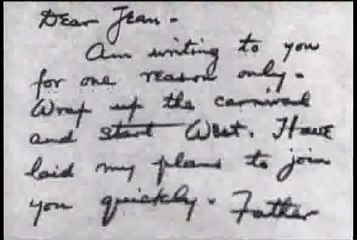 Dear Jean.
Am writing to you
for one reason only.
Wrap up the carnival
and start West. Have
laid my plans to join
you quickly. Father